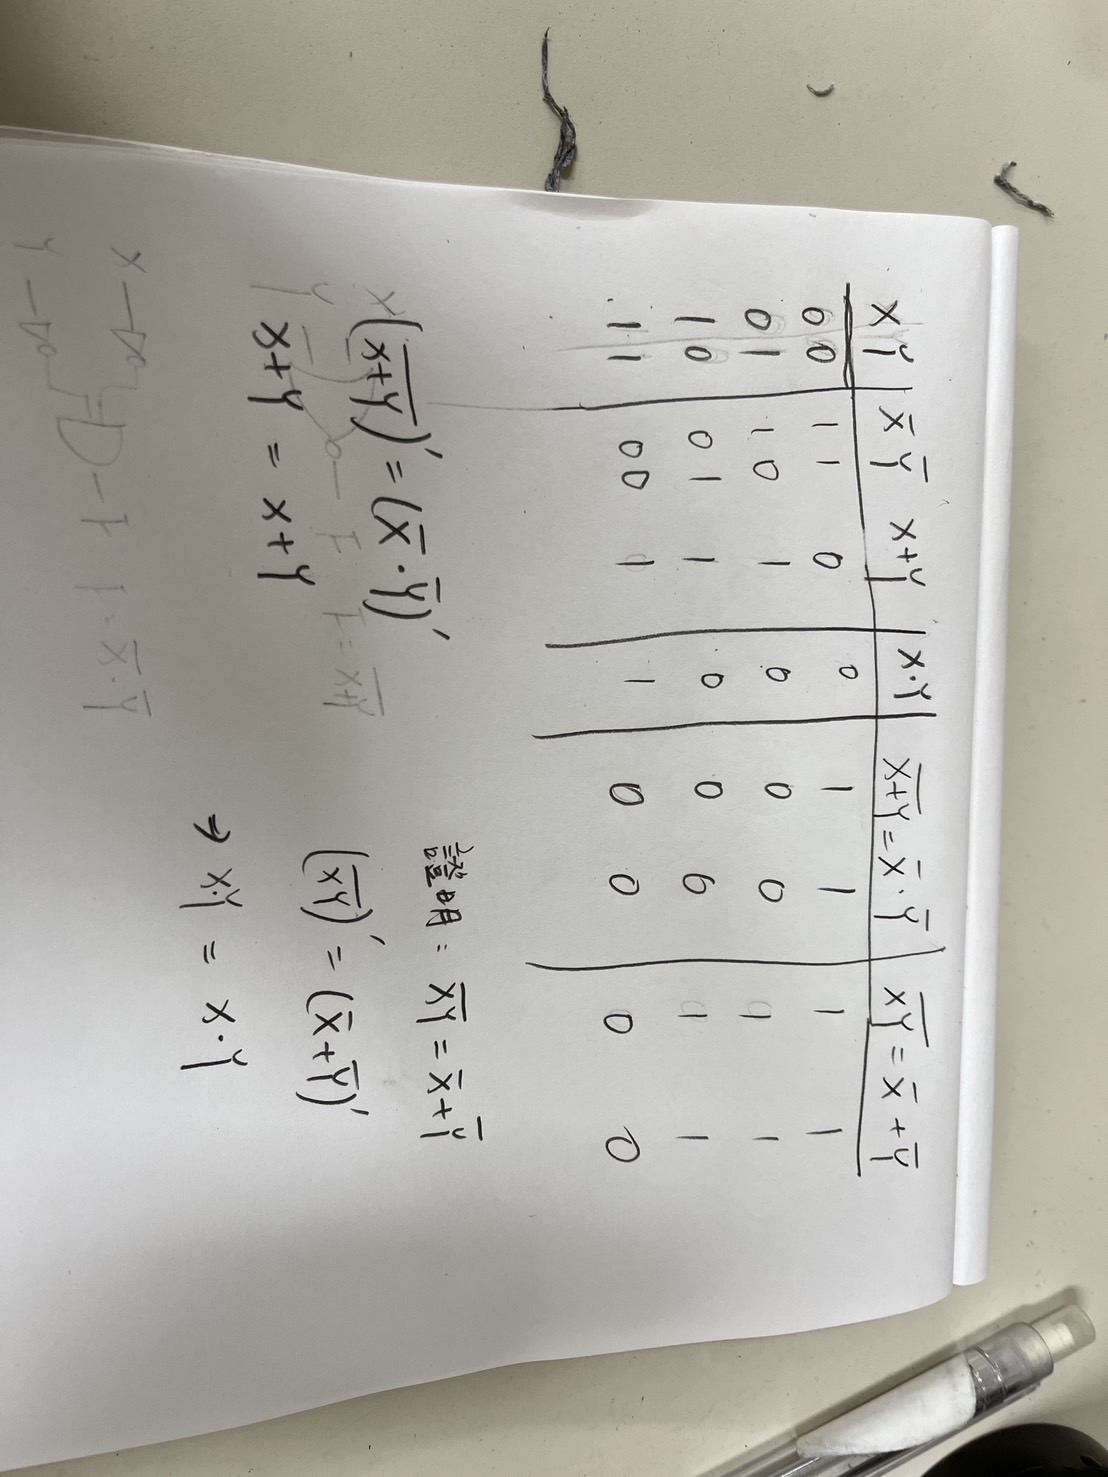 X Y X̅ Y̅ X+Y X·Y \overline{X+Y} = X̅·Y̅ \overline{XY} = X̅+Y̅
0 0 1 1 0 0 1 1 1 1
0 1 1 0 1 0 0 0 1 1
1 0 0 1 1 0 0 0 1 1
1 1 0 0 1 1 0 0 0 0
證明: \overline{XY} = X̅+Y̅
(\overline{X+Y})' = (X̅·Y̅)'
X+Y = X+Y
(\overline{XY})' = (X̅+Y̅)'
⇒ X·Y = X·Y
X
Y
F F = \overline{X+Y}
X
Y
F F = X̅·Y̅